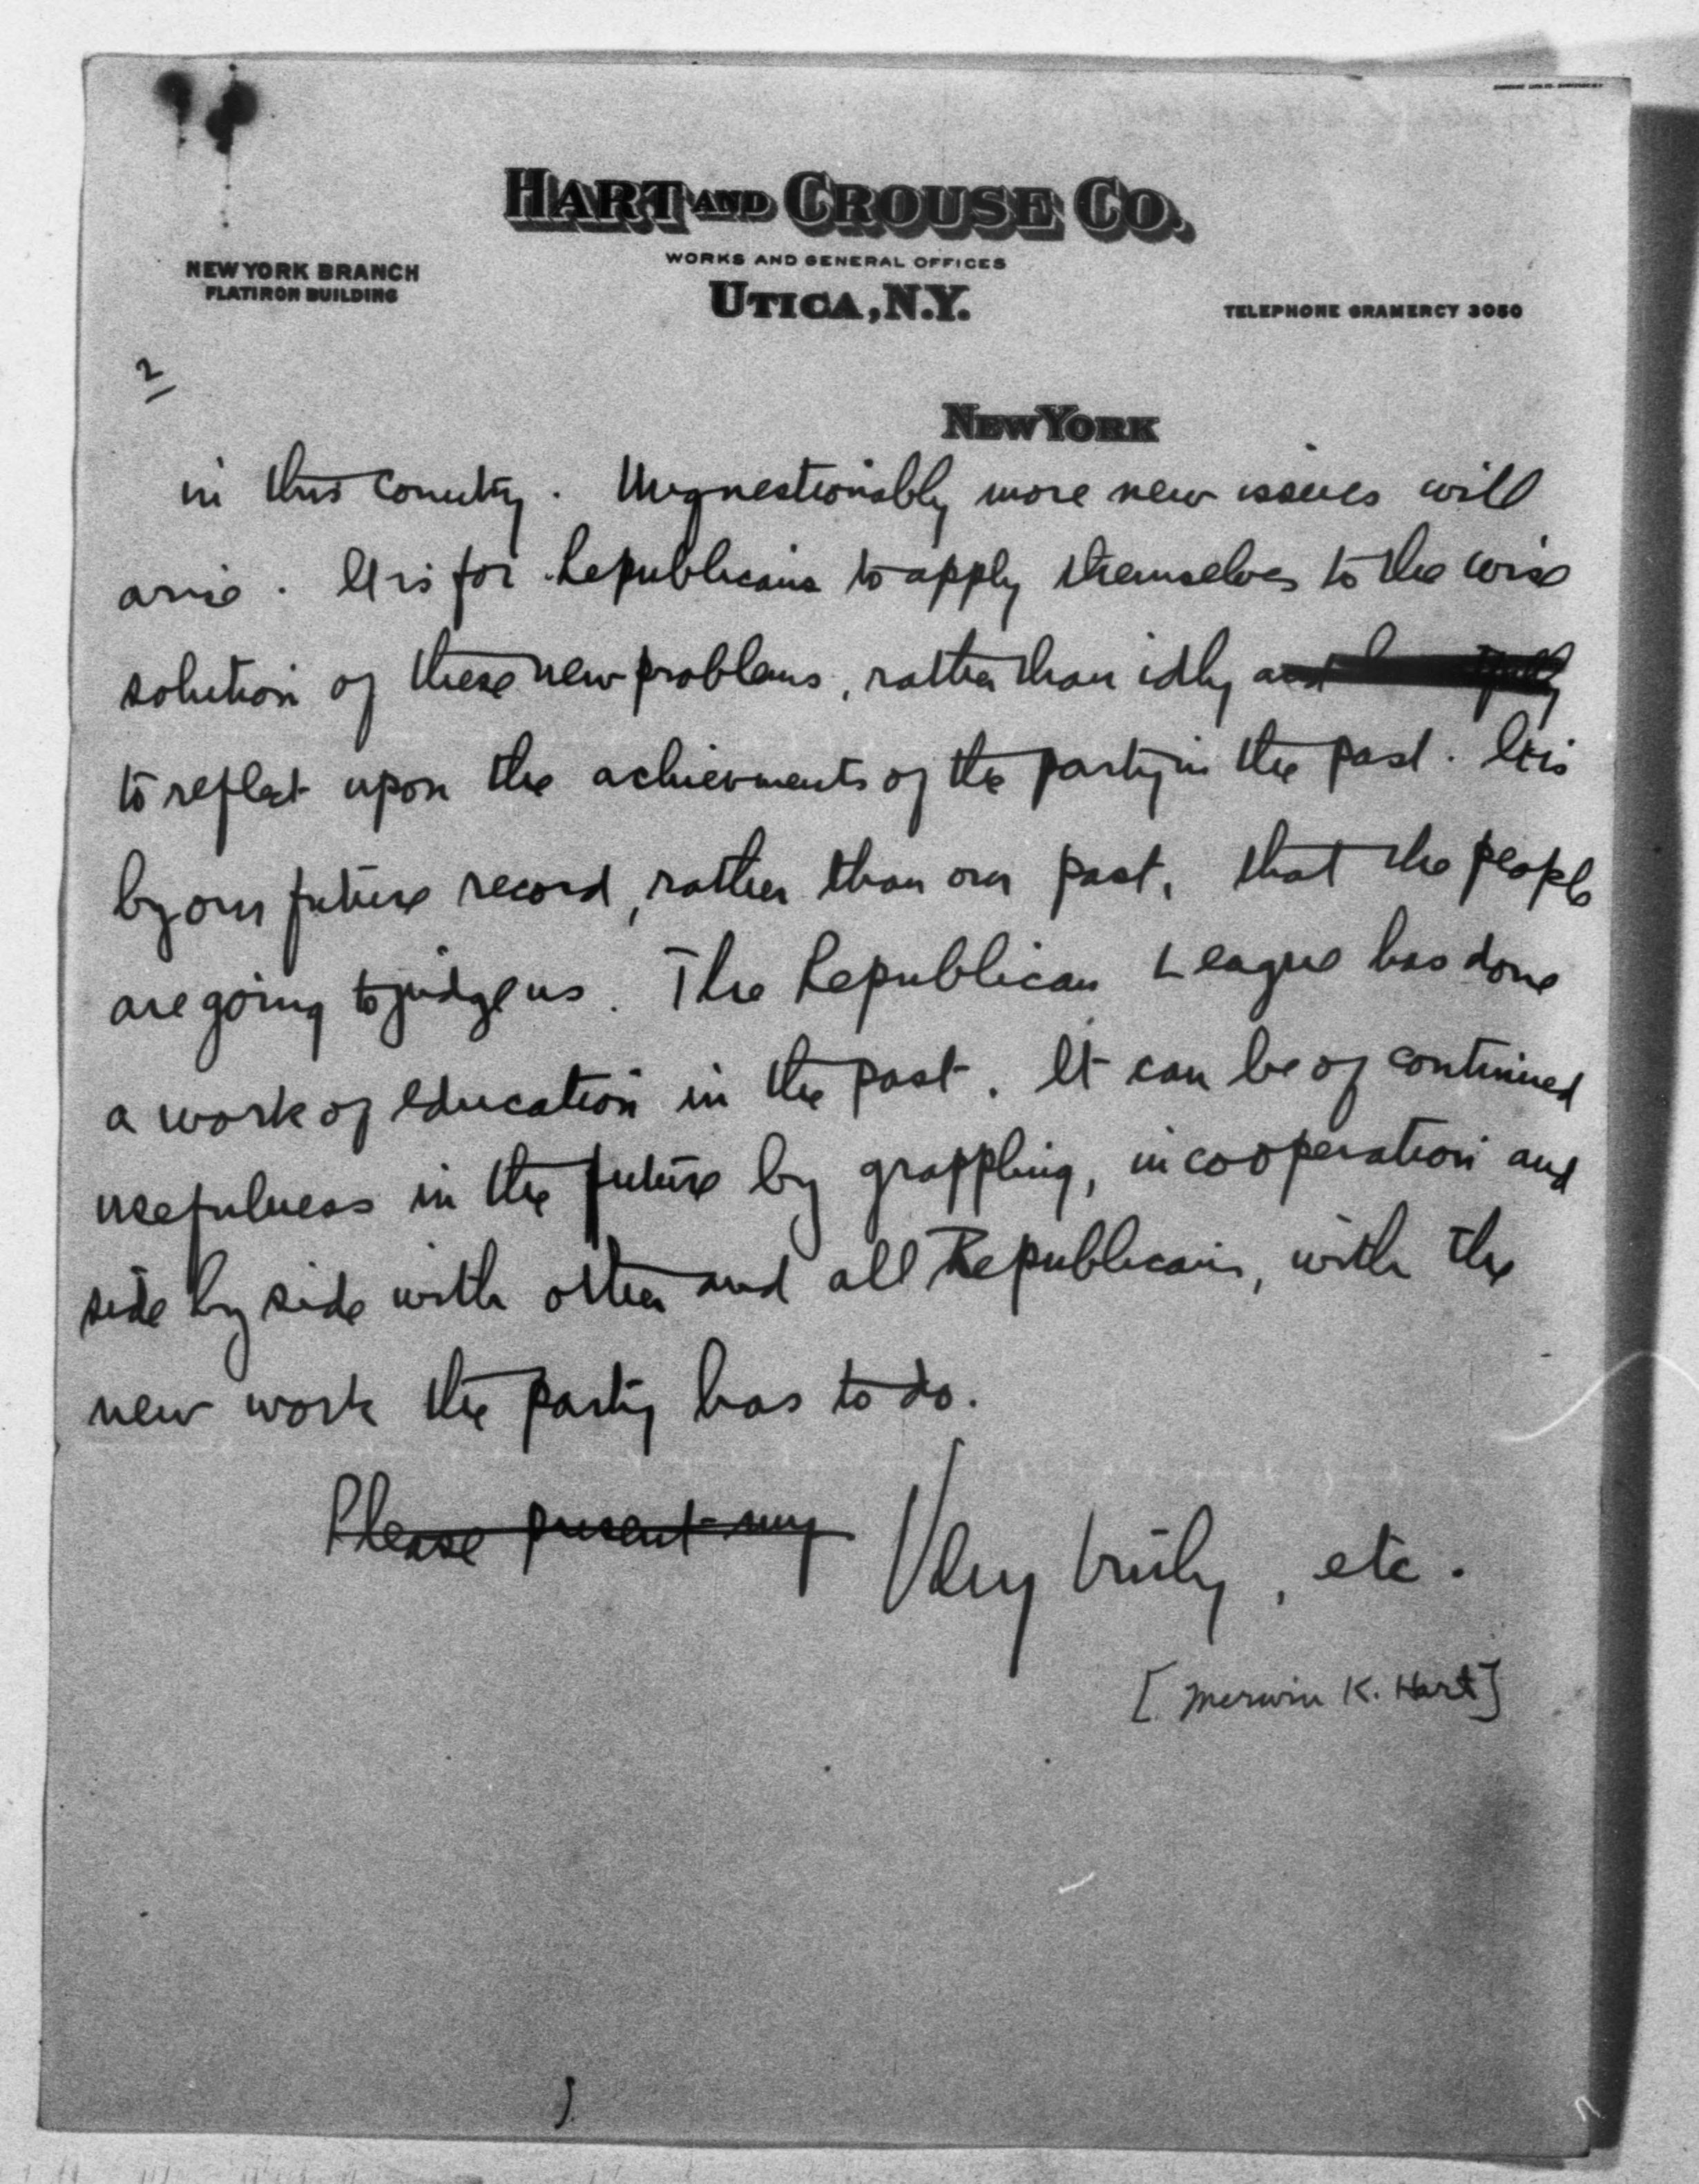 HART AND CROUSE CO.
WORKS AND GENERAL OFFICES
UTICA, N.Y.
NEW YORK BRANCH
FLATIRON BUILDING
TELEPHONE GRAMERCY 3050
2
NEW YORK
in this country. Unquestionably more new issues will
arise. It is for Republicans to apply themselves to the wise
solution of these new problems, rather than idly and
to reflect upon the achievments of the party in the past. It is
by our future record, rather than our past, that the people
are going to judge us. The Republican League has done
a work of education in the past. It can be of continued
usefulness in the future by grappling, in cooperation and
side by side with other and all Republicans, with the
new work the party has to do.
Please present my
Very truly, etc.
[Merwin K. Hart]